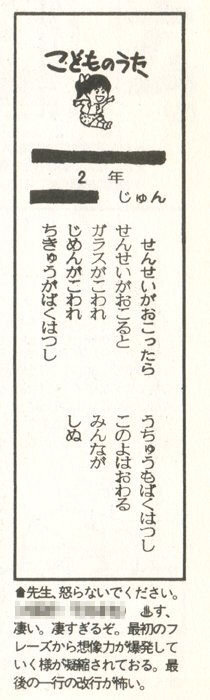 こどものうた
2年
じゅん
せんせいがおこったら
せんせいがおこると
ガラスがこわれ
じめんがこわれ
ちきゅうがばくはつし
うちゅうもばくはつし
このよはおわる
みんなが
しぬ
♠先生、怒らないでください。
す、
凄い。凄すぎるぞ。最初のフ
レーズから想像力が爆発して
いく様が凝縮されておる。最
後の一行の改行が怖い。